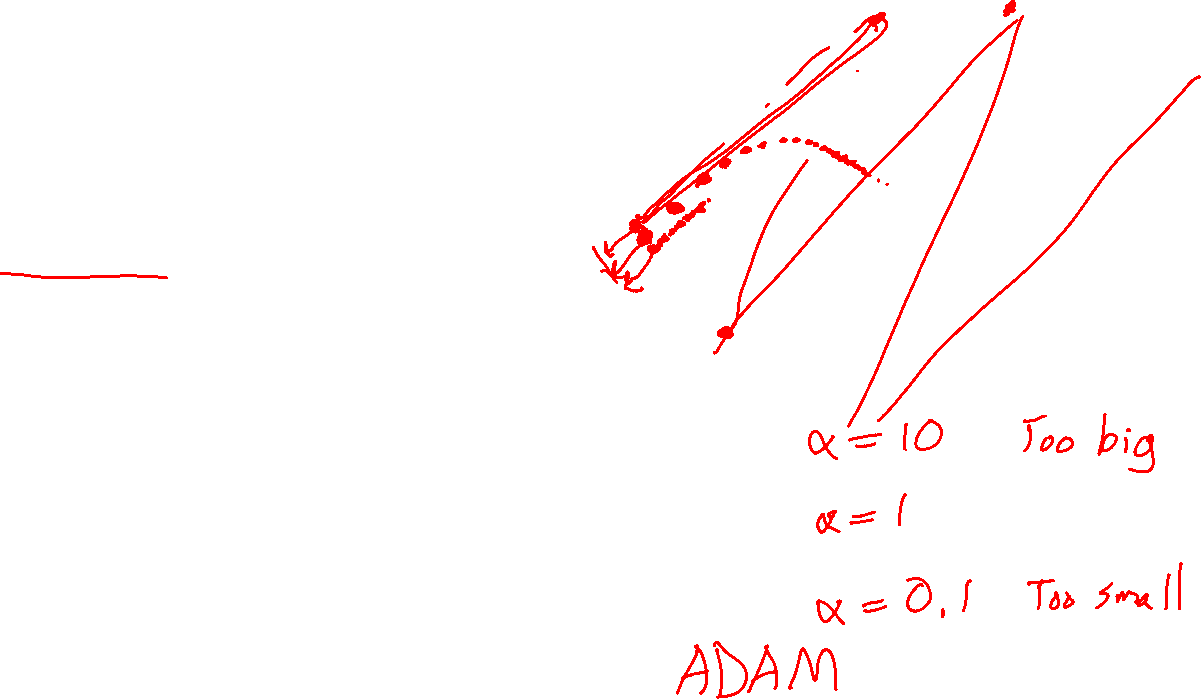 α = 10 Too big
α = 1
α = 0.1 Too small
ADAM